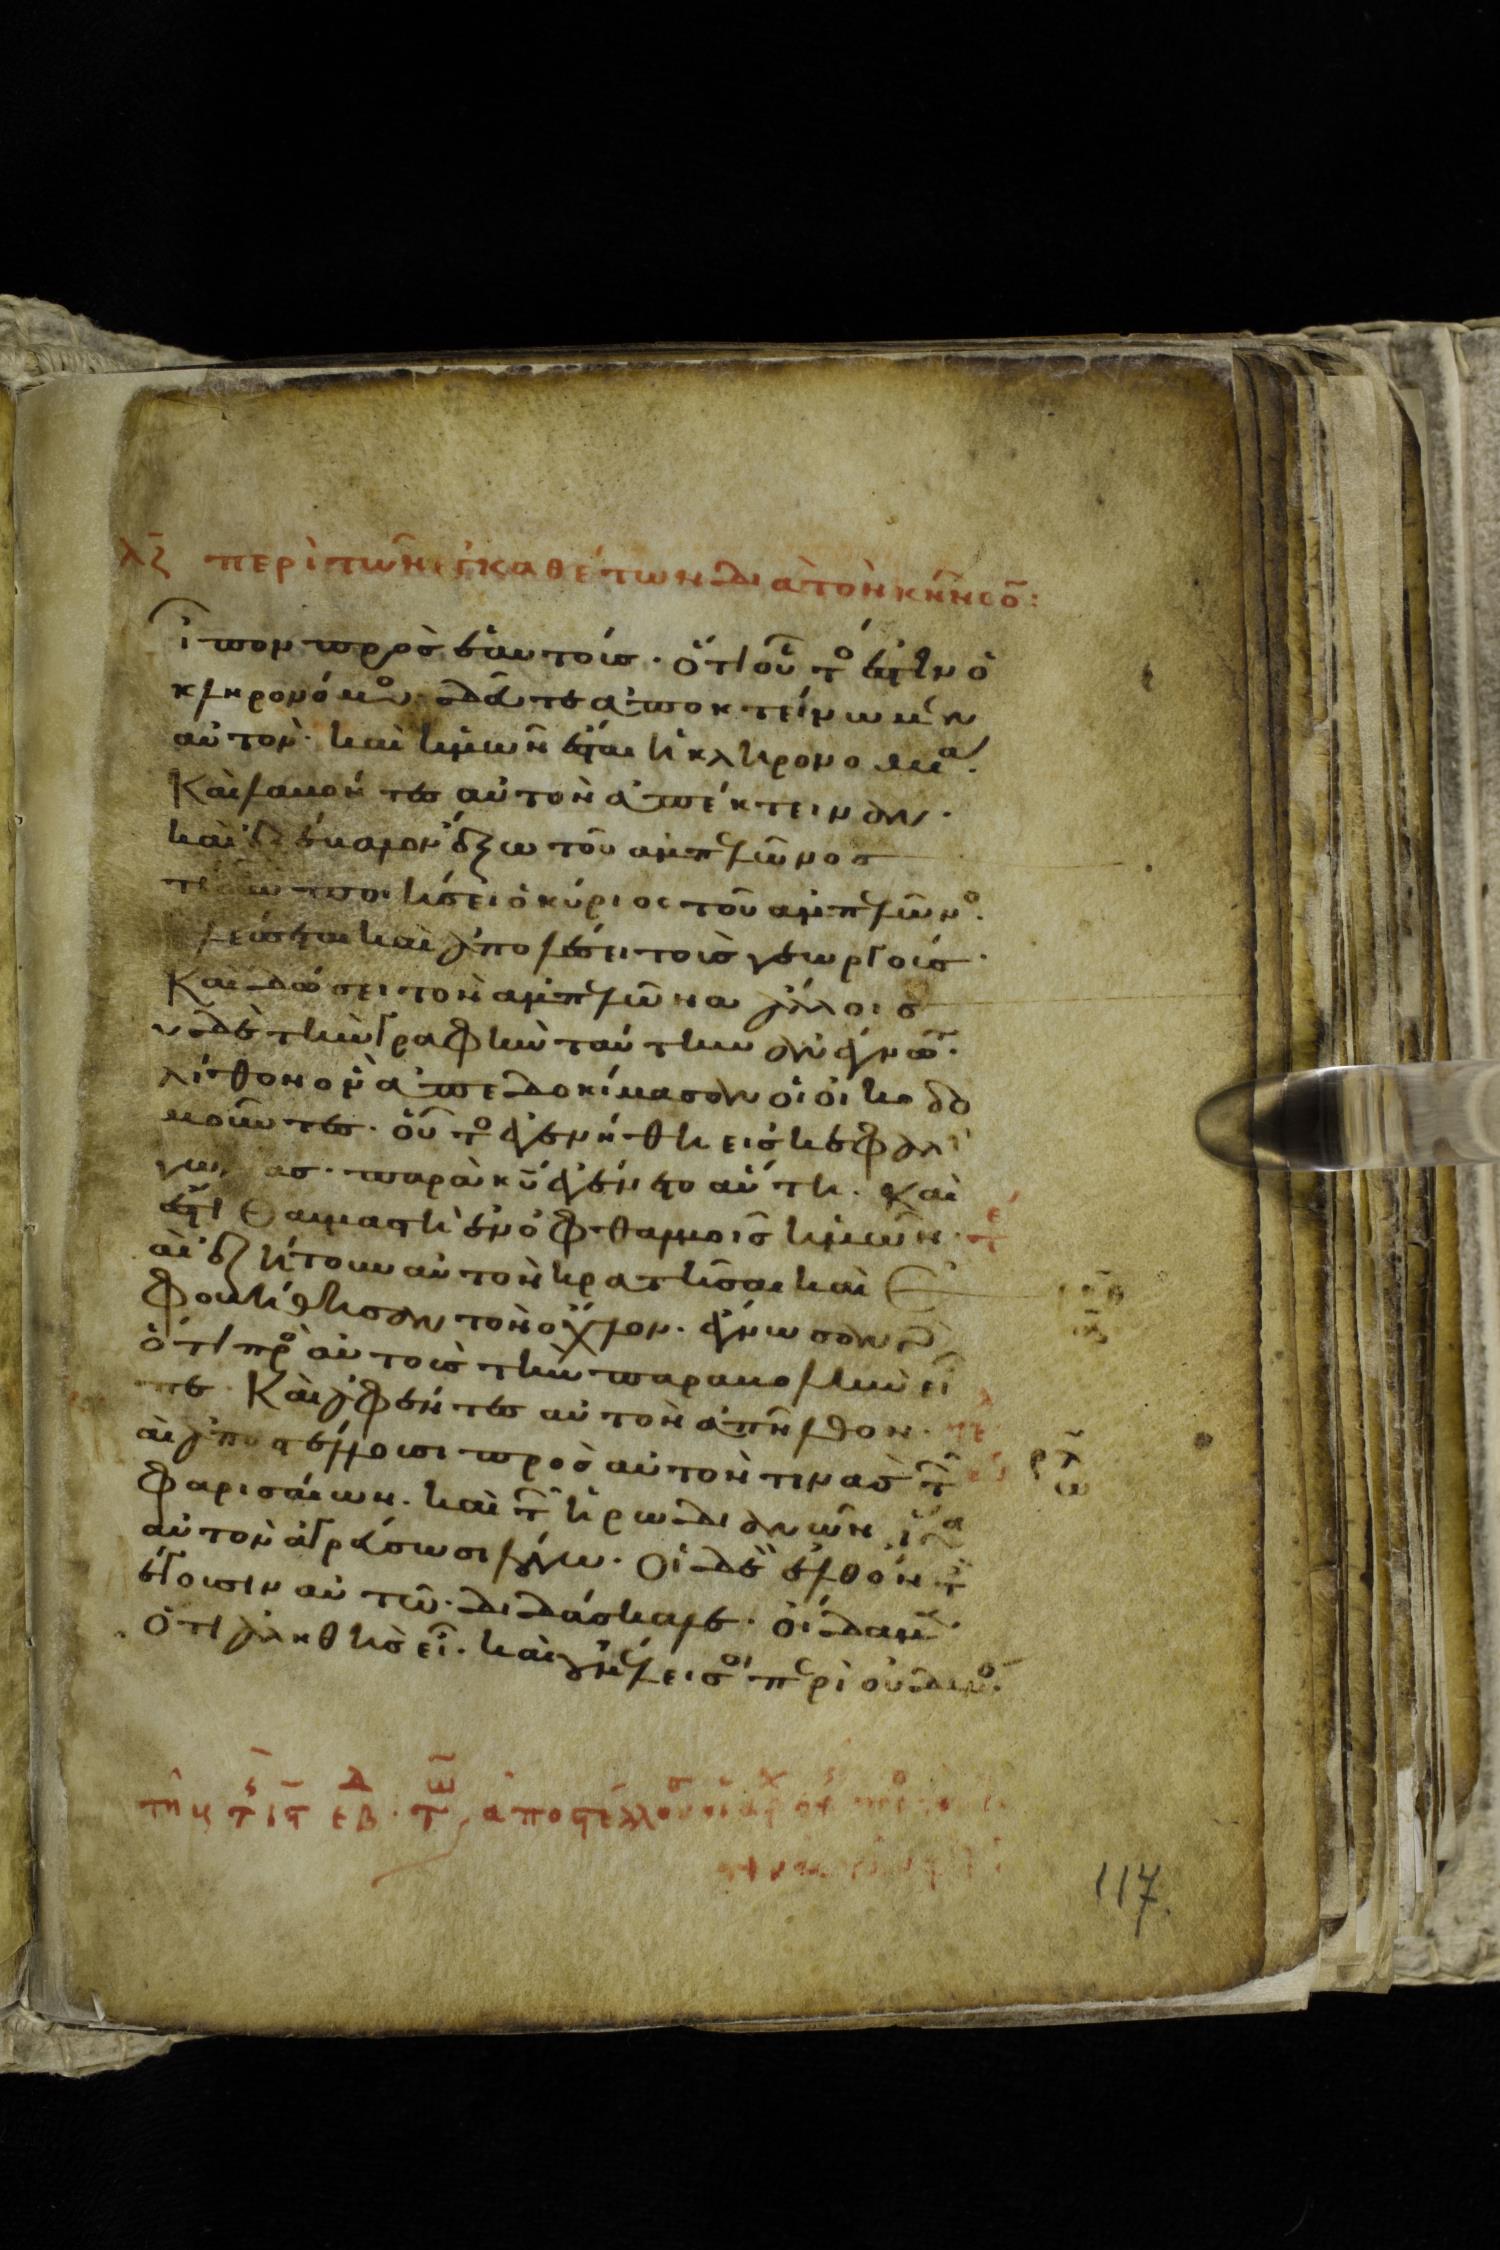 λζ περὶ τῶν ἐγκαθέτων διὰ τὸν κῆνσο̄:
εἶπον πρὸς ἑαυτοὺς· ὅτι οὗτος ἐστὶν ὁ
κληρονόμος· δεῦτε ἀποκτείνωμεν
αὐτὸν· καὶ ἡμῶν ἔσται ἡ κληρονομία.
Καὶ λαβόντες αὐτὸν ἀπέκτειναν·
καὶ ἐξέβαλον ἔξω τοῦ ἀμπελῶνος
τί οὖν ποιήσει ὁ κύριος τοῦ ἀμπελῶνος.
ἐλεύσεται καὶ ἀπολέσει τοὺς γεωργούς·
Καὶ δώσει τὸν ἀμπελῶνα ἄλλοις
οὐδὲ τὴν γραφὴν ταύτην ἀνέγνωτε·
λίθον ὃν ἀπεδοκίμασαν οἱ οἰκοδο
μοῦντες· οὗτος ἐγενήθη εἰς κεφαλὴν
γωνίας· παρὰ κυ ἐγένετο αὕτη. Καὶ
ἔστι θαυμαστὴ ἐν ὀφθαλμοῖς ἡμῶν·
αὶ ἐζήτουν αὐτὸν κρατῆσαι καὶ ἐ
φοβήθησαν τὸν ὄχλον· ἔγνωσαν γὰρ
ὅτι πρὸς αὐτοὺς τὴν παραβολὴν εἶ
πε· Καὶ ἀφέντες αὐτὸν ἀπῆλθον·
αὶ ἀποστέλλουσι πρὸς αὐτὸν τινὰς τῶν
φαρισαίων· καὶ τῶν ἡρωδιανῶν ἵνα
αὐτὸν ἀγρεύσωσι λόγω· Οἱ δὲ ἐλθόντες
λέγουσιν αὐτῶ· διδάσκαλε· οἴδαμεν
ὅτι ἀληθὴς εἶ· καὶ οὐ μέλει σοι περὶ οὐδενός·
τῆ ἀποστέλλουσι
117